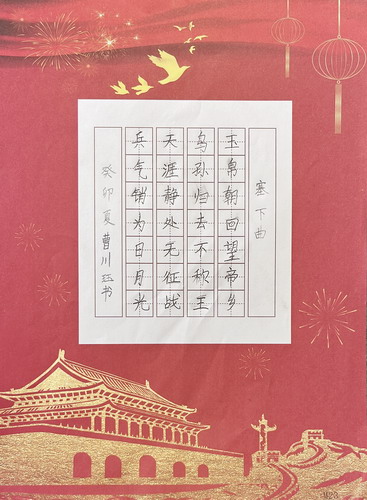 塞下曲
玉帛朝回望帝乡
乌孙归去不称王
天涯静处无征战
兵气销为日月光
癸卯夏曹川 书